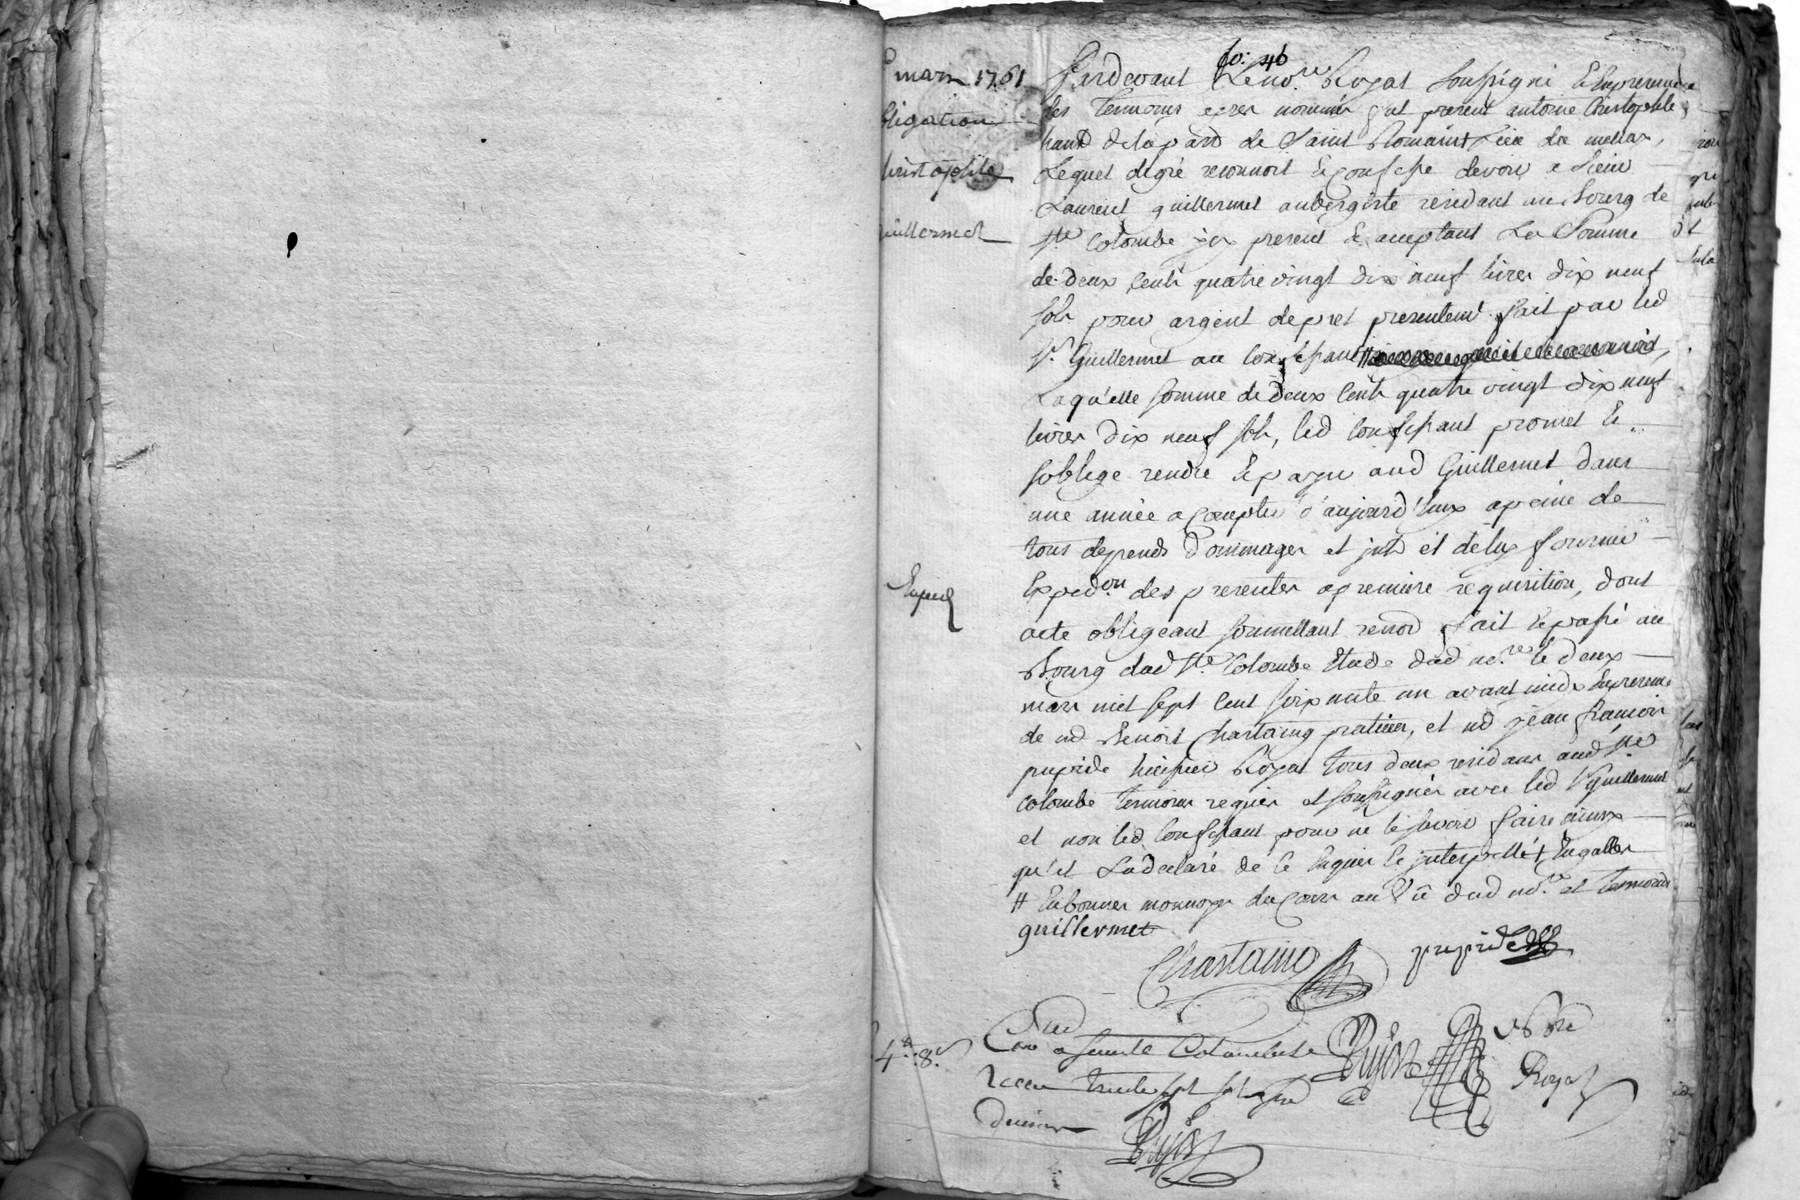 fo: 46
2 mars 1761
obligation
christophle
guillermet
Pardevant Le no.re Royal soussigné Et En presence
des temoins apres nommés fut present antoine Christophle
habitant de la paro de saint Romain
Lequel de gré reconnoit Et confesse devoir a sieur
Laurent guillermet aubergiste residant au Bourg de
Ste Colombe icy present Et acceptant La Somme
de deux cents quatre vingt dix neuf livres dix neuf
sols pour argent de pret presentemt fait par led
Sr Guillermet au confessant #
Laquelle somme de deux Cents quatre vingt dix neuf
livres dix neuf sols, led confessant promet Et
soblige rendre Et payer aud Guillermet dans
une année a compter d'aujourd'huy a peine de
tous depends dommages et jnts et de luy fournir
Exped.on des presentes a premiere requisition, dont
Exped
acte obligeant soumettant renond fait Et passé au
Bourg dud Ste Colombe Etude dud no.re le deux
mars mil sept Cent soixante un avant midy En presence
de md Benoist Chastaing praticien, et md jean francois
pupide huissier Royal tous deux residans aud Ste
Colombe temoins requis et soussignés avec led Sr guillermet
et non led Confessant pour ne le savoir faire ainsy
qu'il La declaré de ce Enquis Et jnterpellé
# En bonnes monnoyes du cours au Vû dud no.re et temoins
guillermet
Chastaing
pupide
Controllé a sainte Colombe le
4.tt 8.s
Recu trente sept sols
deniers
Dujast
Royal
Dujast